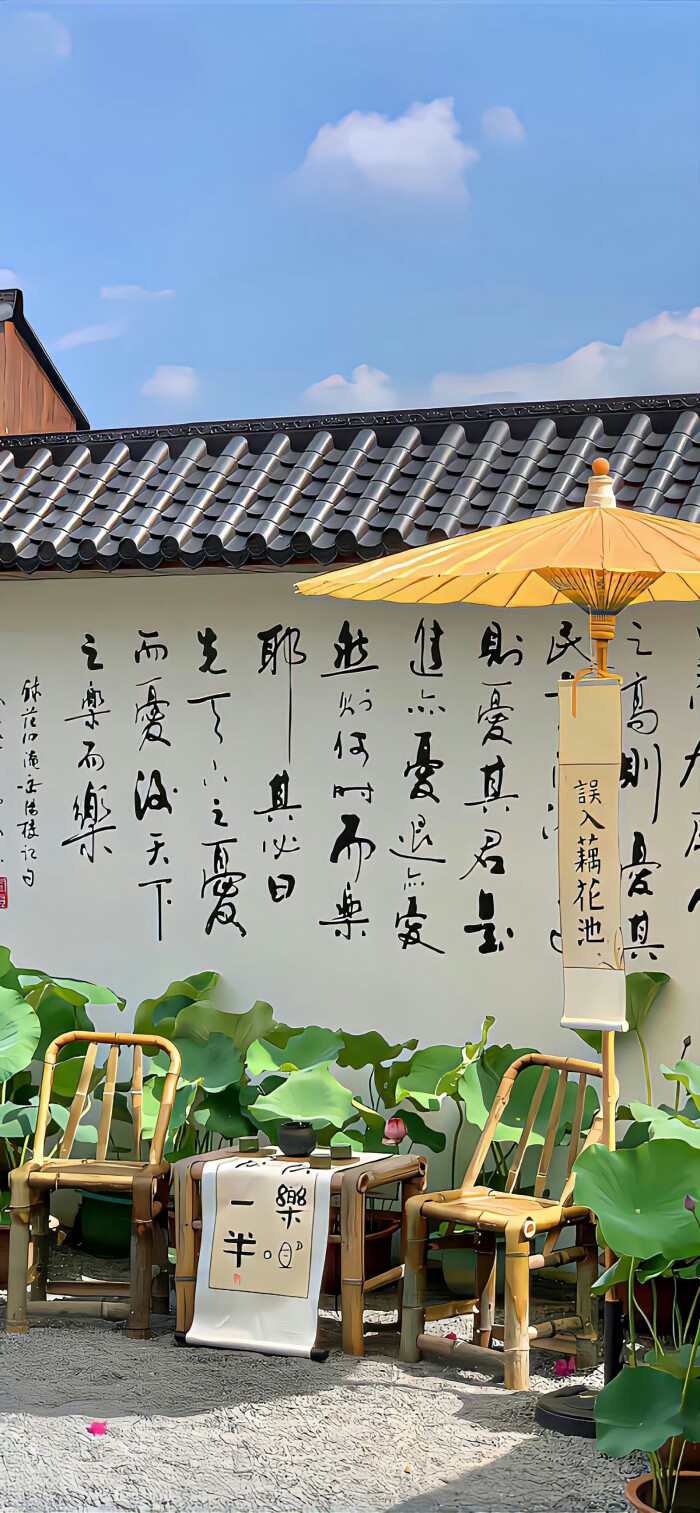 之高則憂其
民
則憂其君是
進亦憂退亦憂
然则何时而樂
耶其必曰
先天下之憂
而憂後天下
之樂而樂
錄范仲淹岳陽樓記句
誤入藕花池
樂
一半